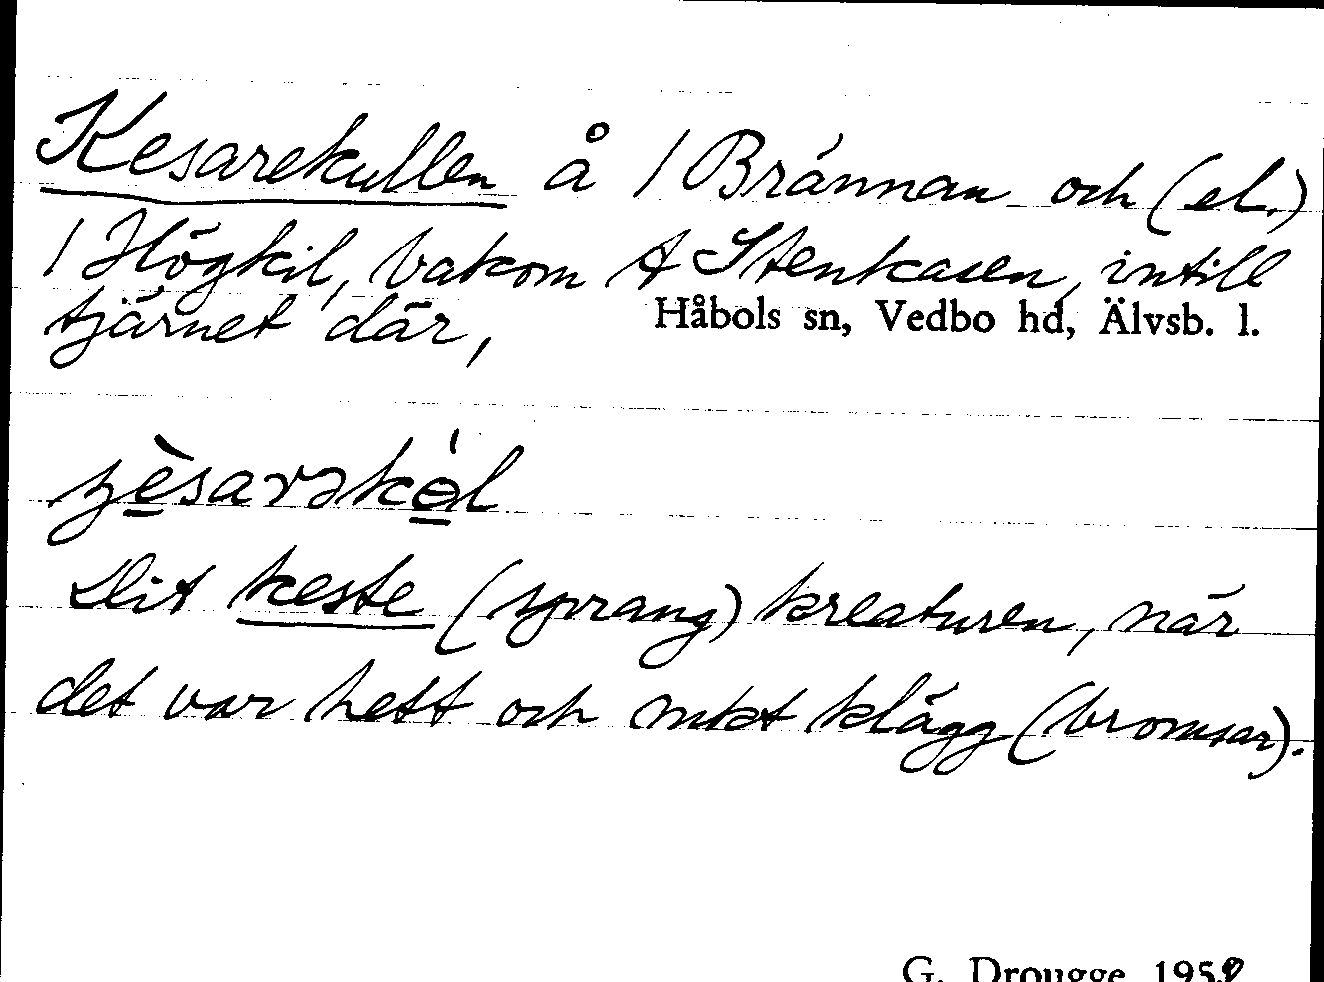 Kesarekullen å / Brännan och (el.)
/ Högkil, bakom † Stenkasen, intill
tjärnet där,
Håbols sn, Vedbo hd, Älvsb. l.
Dit keste (sprang) kreaturen, när
det var hett och mkt klägg (bromsar).
G. Drougge 195